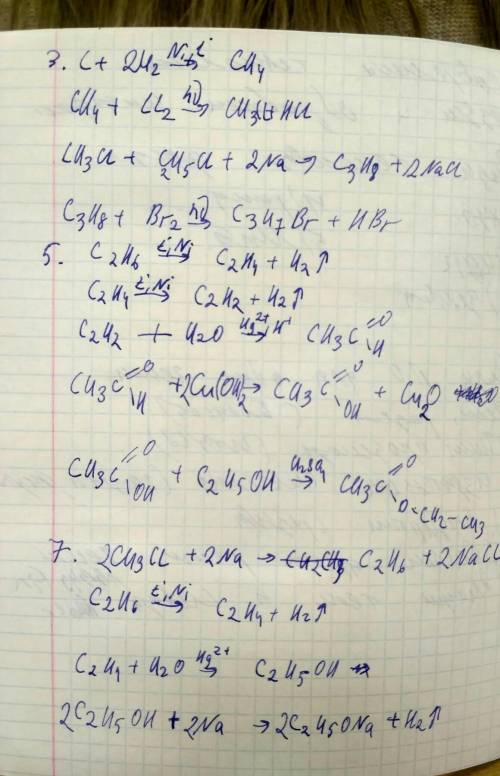 3. C + 2H2 Ni, t→ CH4
CH4 + Cl2 hν→ CH3Cl + HCl
CH3Cl + C2H5Cl + 2Na → C3H8 + 2NaCl
C3H8 + Br2 hν→ C3H7Br + HBr
5. C2H6 t, Ni→ C2H4 + H2↑
C2H4 t, Ni→ C2H2 + H2↑
C2H2 + H2O Hg2+→ H+ CH3C=O H
CH3C=O H + 2Cu(OH)2 → CH3C=O OH + Cu2O
CH3C=O OH + C2H5OH H2SO4→ CH3C=O O-CH2-CH3
7. 2CH3Cl + 2Na → C2H6 + 2NaCl
C2H6 t, Ni→ C2H4 + H2↑
C2H4 + H2O Hg2+→ C2H5OH
2C2H5OH + 2Na → 2C2H5ONa + H2↑